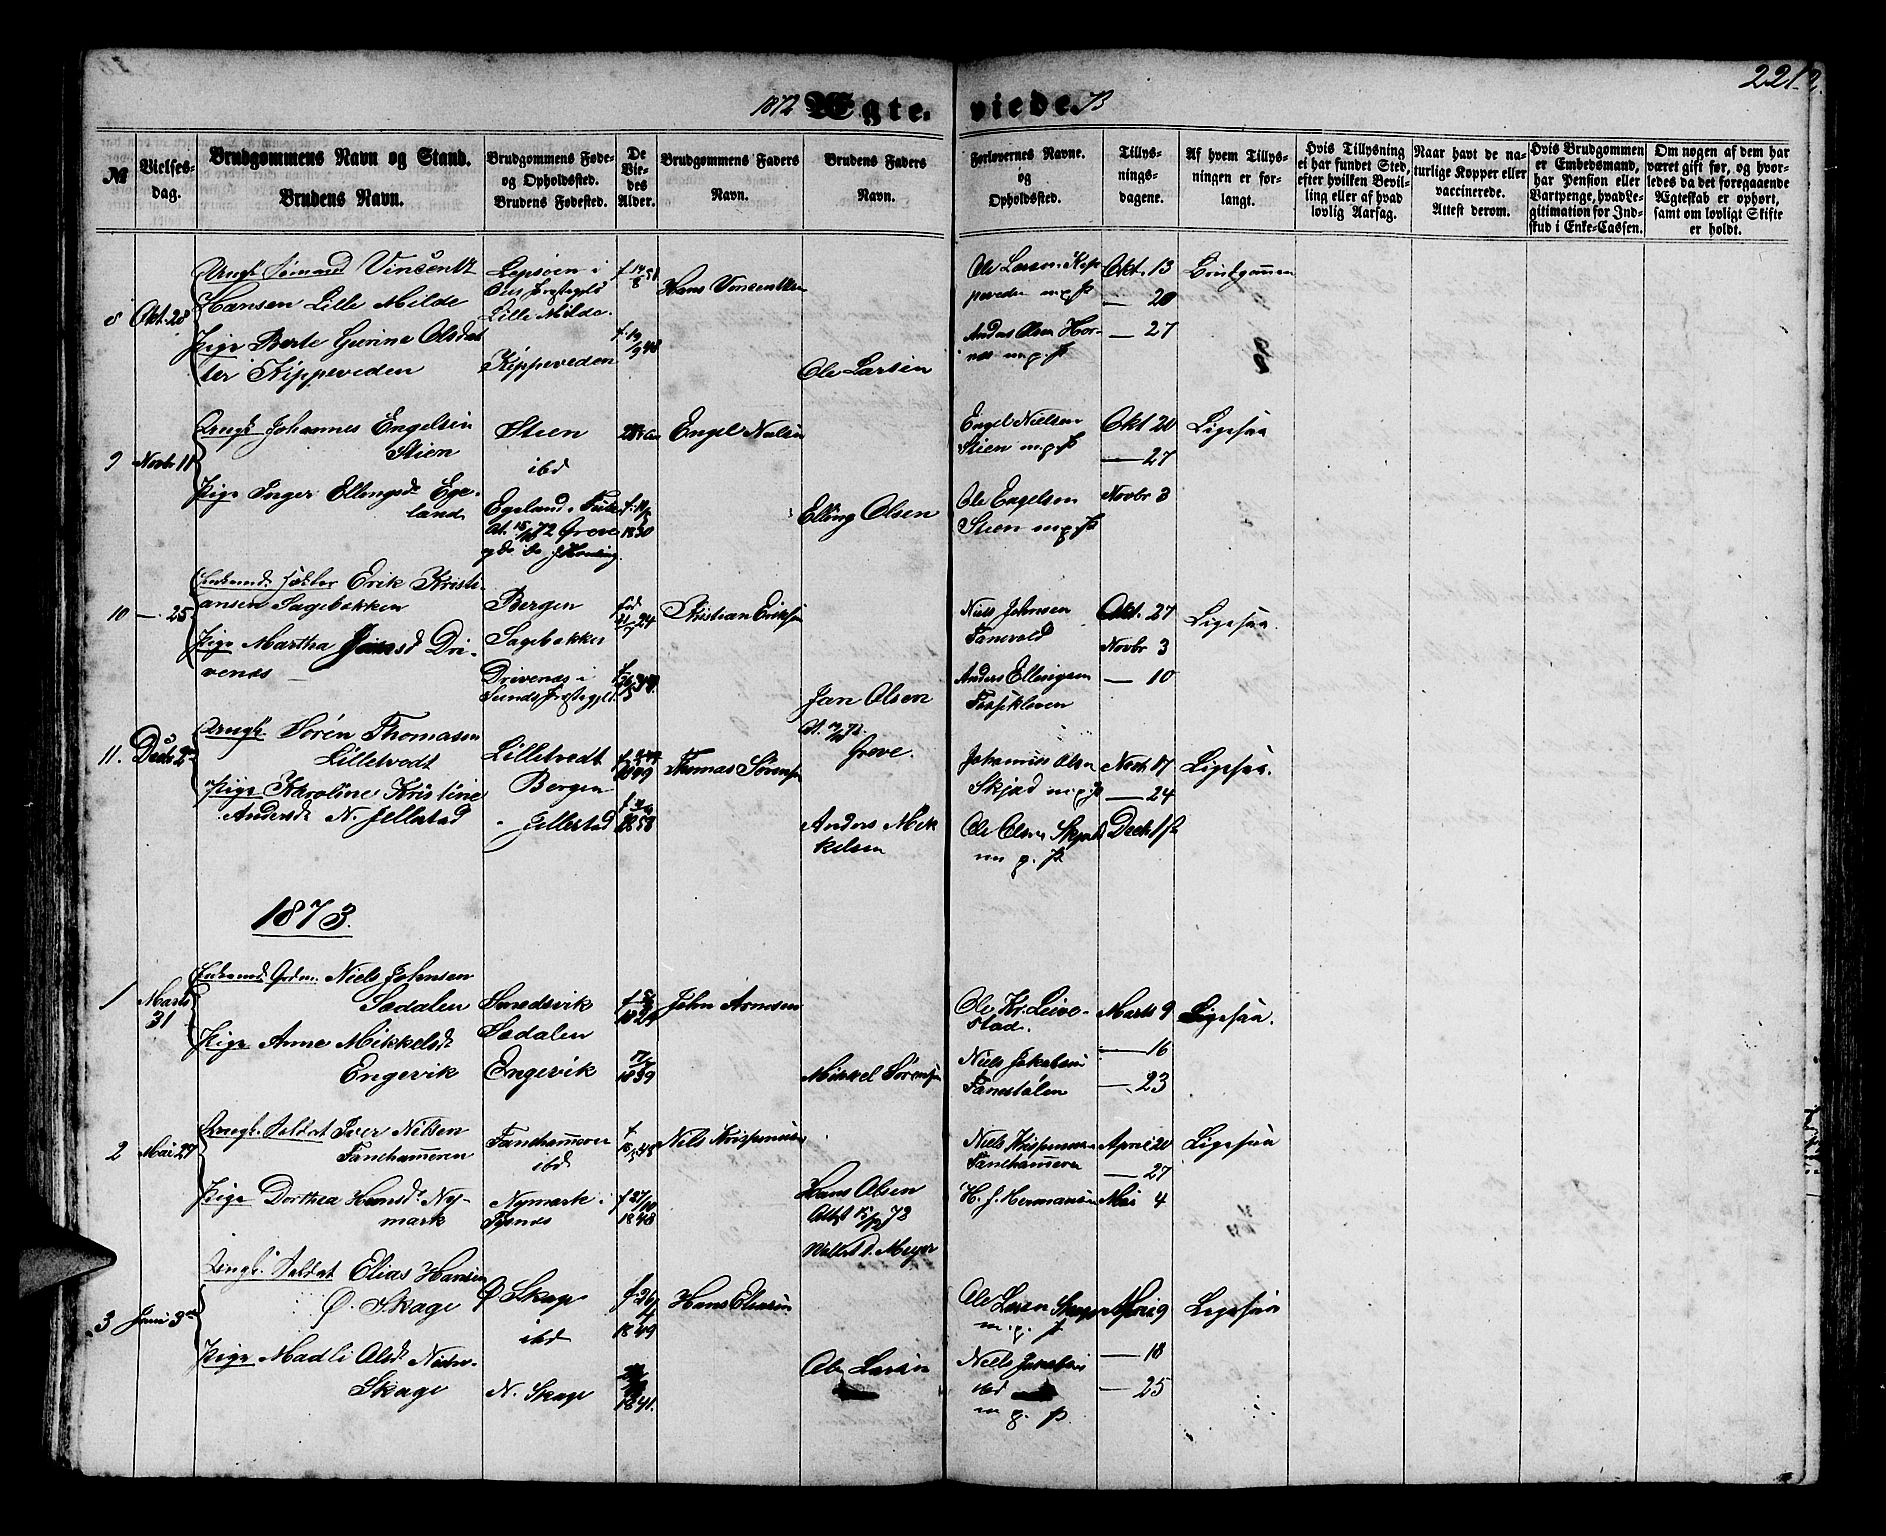 1872 Ægte-
viede. 73
221
№
Vielses-
dag.
Brudgommens Navn og Stand.
Brudens Navn.
Brudgommens Føde-
og Opholdssted.
Brudens Fødested.
De
Vie-
des
Alder.
Brudgommens Faders
Navn.
Brudens Faders
Navn.
Forlovernes Navne.
og
Opholdssted.
Tillys-
nings-
dagene.
Af hvem Tillys-
ningen er for-
langt.
Hvis Tillysning
ei har fundet Sted,
efter hvilken Bevil-
ling eller af hvad
lovlig Aarsag.
Naar havt de na-
turlige Kopper eller
vaccinerede.
Attest derom.
Hvis Brudgommen
er Embedsmand,
har Pension eller
Vartpenge, hvad Le-
gitimation for Ind-
skud i Enke-Cassen.
Om nogen af dem har
været gift før, og hvor-
ledes da det foregaaende
Ægteskab er ophørt,
samt om lovligt Skifte
er holdt.
8 Okt. 28
Ungk. Sømand Vincentz
Hansen Lille Milde
Pige Berte Gurine Olsdat
ter Kippeveden
Lepsøen i
Lille Milde.
Kippeveden
Hans Vincentsen
Ole Larsen
Ole Larsen Kip
peveden m.p.P.
Anders Olsen Hor-
næs m.p.P.
Okt. 13
— 20
— 27
Brudgommen
9 Novbr 11
Ungk Johannes Engelsen
Stien
Pige Inger Ellingsd. Ege-
land
Stien
ibd
Egeland i
At. 15/10 72 Greve
1830
Engel Nielsen
Elling Olsen
Engel Nielsen
Stien m.p.P.
Ole Engelsen
Stien m.p.P.
Okt 20
— 27
Novbr 3
Ligesaa
10 — 25
Enkemd. Erik Kristi-
ansen Sagebakken
Pige Martha Jansd Dri-
venæs
Bergen
Sagebakken
Drivenæs i
Sunds Præstegjeld
Kristian Eriksen
Jan Olsen
Greve.
Niels Johnsen
Fanevold
Anders Ellingsen
Okt. 27
Novbr 3
— 10
Ligesaa.
11. Decbr 2
Ungk. Sören Thomasen
Lilletvedt
Pige Karoline Kristine
Andersd N. Jellestad
Lilletvedt
Bergen
Jellestad
1849
1858
Thomas Sörensen
Anders Mik
kelsen
Johannes Olsen
Skjold m.p.P.
Ole Olsen Skjold
m. p. P.
Novb. 17
— 24
Decb 1ste
Ligesaa.
1873.
1 Marts
31
Enkemd. Niels Johnsen
Sædalen
Pige Anne Mikkelsd
Engevik
Smedsvik
Sædalen
Engevik
17/7
1839
John Arnesen
Mikkel Sörensen
Ole Kr. Leive-
stad.
Niels Jakobsen
Fanestölen
Marts 9
— 16
— 23
Ligesaa.
2 Mai 27
Ungk. Soldat Iver Nilsen
Fanehammeren
Pige Dorthea Hansd Ny-
mark
Fanehammeren
ibd
Nymark i
Fjsnes
f 27/10
1848
Niels Krispinusen
Hans Olsen
Attest 15/12 73
Meyer
Niels Krispinusen
Fanehammeren
H. J. Hermansen
April 20
— 27
Mai 4
Ligesaa
3 Juni 3die
Ungk. Soldat Elias Hansen
Ø. Skage
Pige Madli Olsd. Nedre-
Skage
Ø Skage
ibd
N. Skage
f 26/4
1849
1841.
Hans Eliasen
Ole Larsen
Ole Larsen Skage
m. p. P.
Niels Jakobsen
ibd
m p. P.
Mai 9
— 18
— 25
Ligesaa